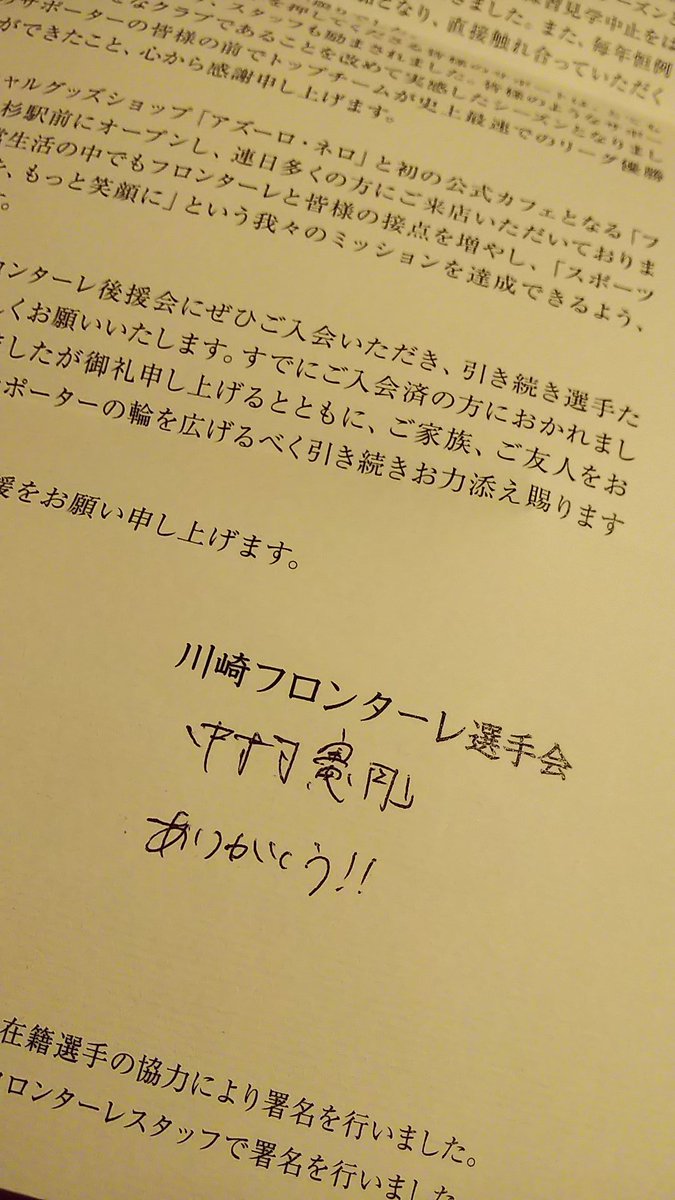 習見学中止をは
となり、直接触れ合っていただく
きました。また、毎年恒例
、スタッフも励まされました。皆様の
なクラブであることを改めて実感したシーズンとなりまし
のサポーターの皆様の前でトップチームが史上最速でのリーグ優勝
ができたこと、心から感謝申し上げます。
ャルグッズショップ「アズーロ・ネロ」と初の公式カフェとなる「フ
杉駅前にオープンし、連日多くの方にご来店いただいておりま
常生活の中でもフロンターレと皆様の接点を増やし、「スポーツ
、もっと笑顔に」という我々のミッションを達成できるよう、
す。
ロンターレ後援会にぜひご入会いただき、引き続き選手た
しくお願いいたします。すでにご入会済の方におかれまし
ましたが御礼申し上げるとともに、ご家族、ご友人をお
サポーターの輪を広げるべく引き続きお力添え賜ります
援をお願い申し上げます。
川崎フロンターレ選手会
中村憲剛
ありがとう!!
在籍選手の協力により署名を行いました。
フロンターレスタッフで署名を行いました